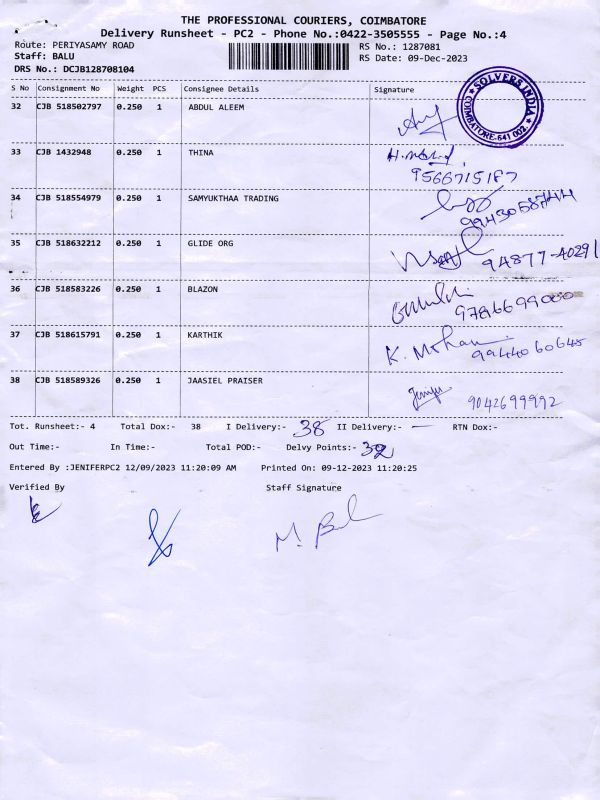 THE PROFESSIONAL COURIERS, COIMBATORE
Delivery Runsheet - PC2 - Phone No.:0422-3505555 - Page No.:4
Route: PERIYASAMY ROAD RS No.: 1287081
Staff: BALU RS Date: 09-Dec-2023
DRS No.: DCJB128708104
S No Consignment No Weight PCS Consignee Details Signature
32 CJB 518502797 0.250 1 ABDUL ALEEM
SOLVERS INDIA
COIMBATORE-641 002
33 CJB 1432948 0.250 1 THINA
9566715187
34 CJB 518554979 0.250 1 SAMYUKTHAA TRADING
35 CJB 518632212 0.250 1 GLIDE ORG 94877-40291
36 CJB 518583226 0.250 1 BLAZON
37 CJB 518615791 0.250 1 KARTHIK K. Mohan 9944060645
38 CJB 518589326 0.250 1 JAASIEL PRAISER 9042699992
Tot. Runsheet:- 4 Total Dox:- 38 I Delivery:- 38 II Delivery:- — RTN Dox:-
Out Time:- In Time:- Total POD:- Delvy Points:-
Entered By :JENIFERPC2 12/09/2023 11:20:09 AM Printed On: 09-12-2023 11:20:25
Verified By Staff Signature